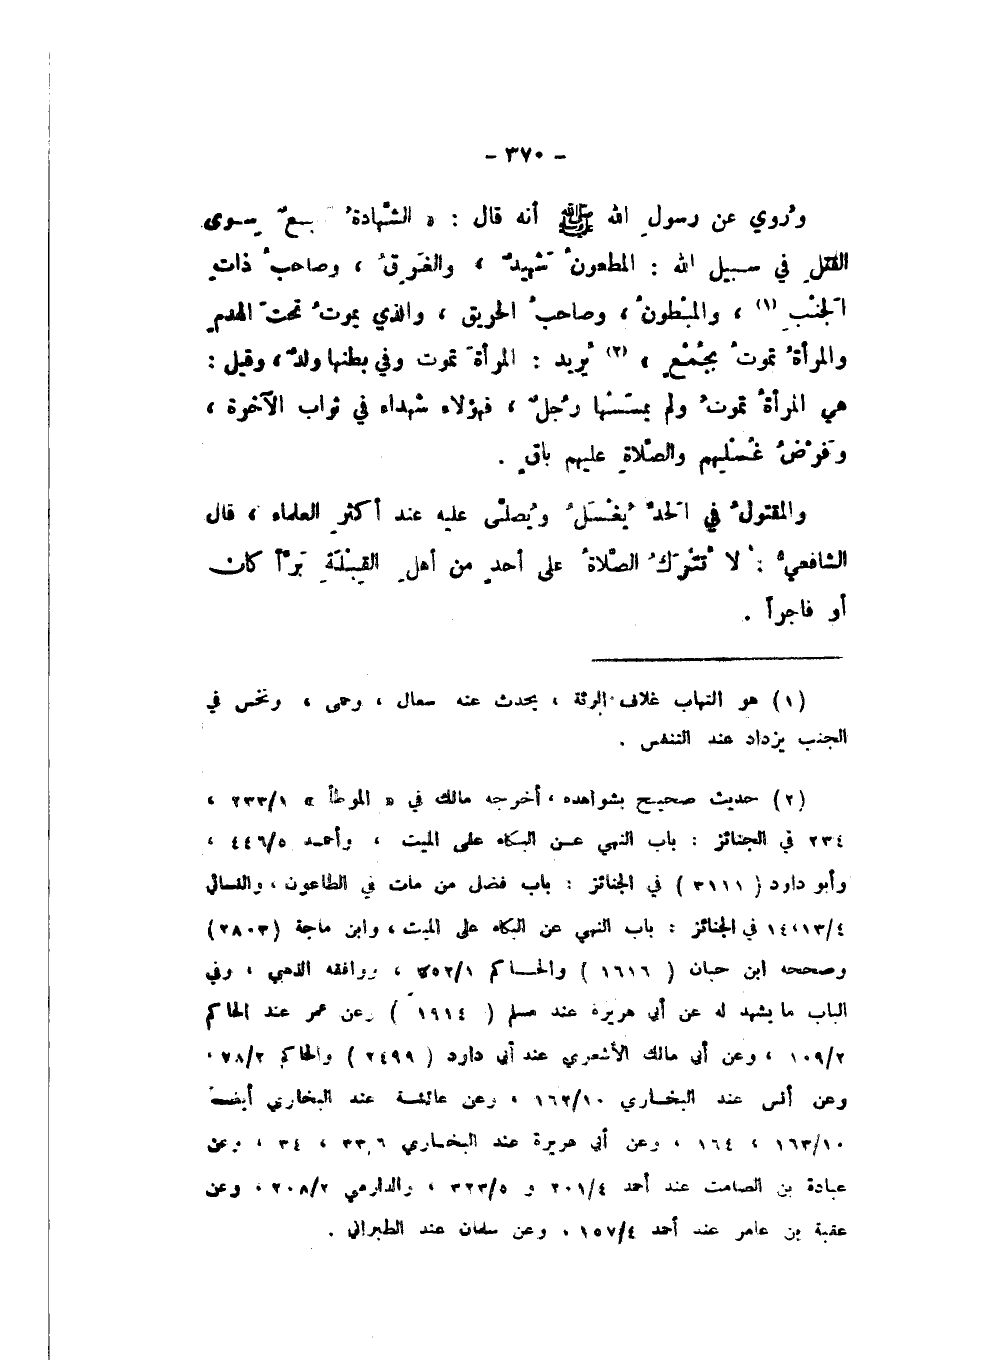 - ٣٧٠ -
ورُوي عن رسولِ الله ﷺ أنه قال : « الشَّهادةُ سبعٌ سِوى
القَتْلِ في سبيل الله : المطعونُ شهيدٌ ، والغَرِقُ ، وصاحبُ ذاتِ
الجَنْبِ (١) ، والمَبْطونُ ، وصاحبُ الحريق ، والذي يموتُ تحتَ الهدمِ
والمرأةُ تموتُ بجُمْعٍ ، (٢) يُريد : المرأةَ تموت وفي بطنها ولدٌ ، وقيل :
هي المرأةُ تموتُ ولم يَمسَسْها رجُلٌ ، فهؤلاء شهداء في ثواب الآخرة ،
وفَرْضُ غُسْلِهم والصَّلاةِ عليهم باقٍ .
والمقتولُ في الحَدِّ يُغْسَلُ ويُصلَّى عليه عند أكثرِ العلماء ، قال
الشافعيُّ : لا تُتْرَكُ الصَّلاةُ على أحدٍ من أهلِ القِبْلَةِ بَرّاً كان
أو فاجراً .
(١) هو التهاب غلاف الرئة ، يحدث عنه سعال ، وحمى ، ونخس في
الجنب يزداد عند التنفس .
(٢) حديث صحيح بشواهده ، أخرجه مالك في « الموطأ » ٢٣٣/١ ،
٢٣٤ في الجنائز : باب النهي عن البكاء على الميت ، وأحمد ٤٤٦/٥ ،
وأبو داود ( ٣١١١ ) في الجنائز : باب فضل من مات في الطاعون ، والنسائي
١٤،١٣/٤ في الجنائز : باب النهي عن البكاء على الميت ، وابن ماجة (٢٨٠٣)
وصححه ابن حبان ( ١٦١٦ ) والحاكم ٣٥٢/١ ، ووافقه الذهبي ، وفي
الباب ما يشهد له عن أبي هريرة عند مسلم ( ١٩١٤ ) وعن عمر عند الحاكم
١٠٩/٢ ، وعن أبي مالك الأشعري عند أبي داود ( ٢٤٩٩ ) والحاكم ٧٨/٢ ،
وعن أنس عند البخاري ١٦٢/١٠ ، وعن عائشة عند البخاري أيضاً
١٦٣/١٠ ، ١٦٤ ، وعن أبي هريرة عند البخاري ٣٣/٦ ، ٣٤ ، وعن
عبادة بن الصامت عند أحمد ٢٠١/٤ و ٣٢٣/٥ ، والدارمي ٢٠٨/٢ ، وعن
عقبة بن عامر عند أحمد ١٥٧/٤ ، وعن سلمان عند الطبراني .